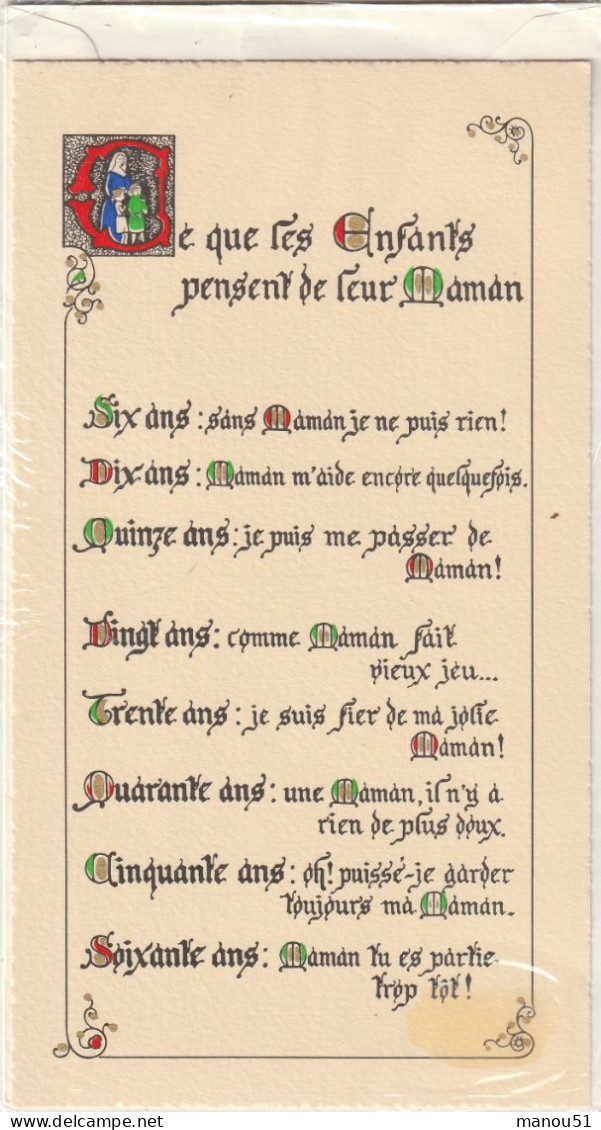 Ce que les Enfants
pensent de leur Maman
Six ans : sans Maman je ne puis rien !
Dix ans : Maman m'aide encore quelquefois.
Quinze ans : je puis me passer de
Maman !
Vingt ans : comme Maman fait
vieux jeu...
Trente ans : je suis fier de ma jolie
Maman !
Quarante ans : une Maman, il n'y a
rien de plus doux.
Cinquante ans : oh ! puissé-je garder
toujours ma Maman.
Soixante ans : Maman tu es partie
trop tôt !
delcampe.net
manou51